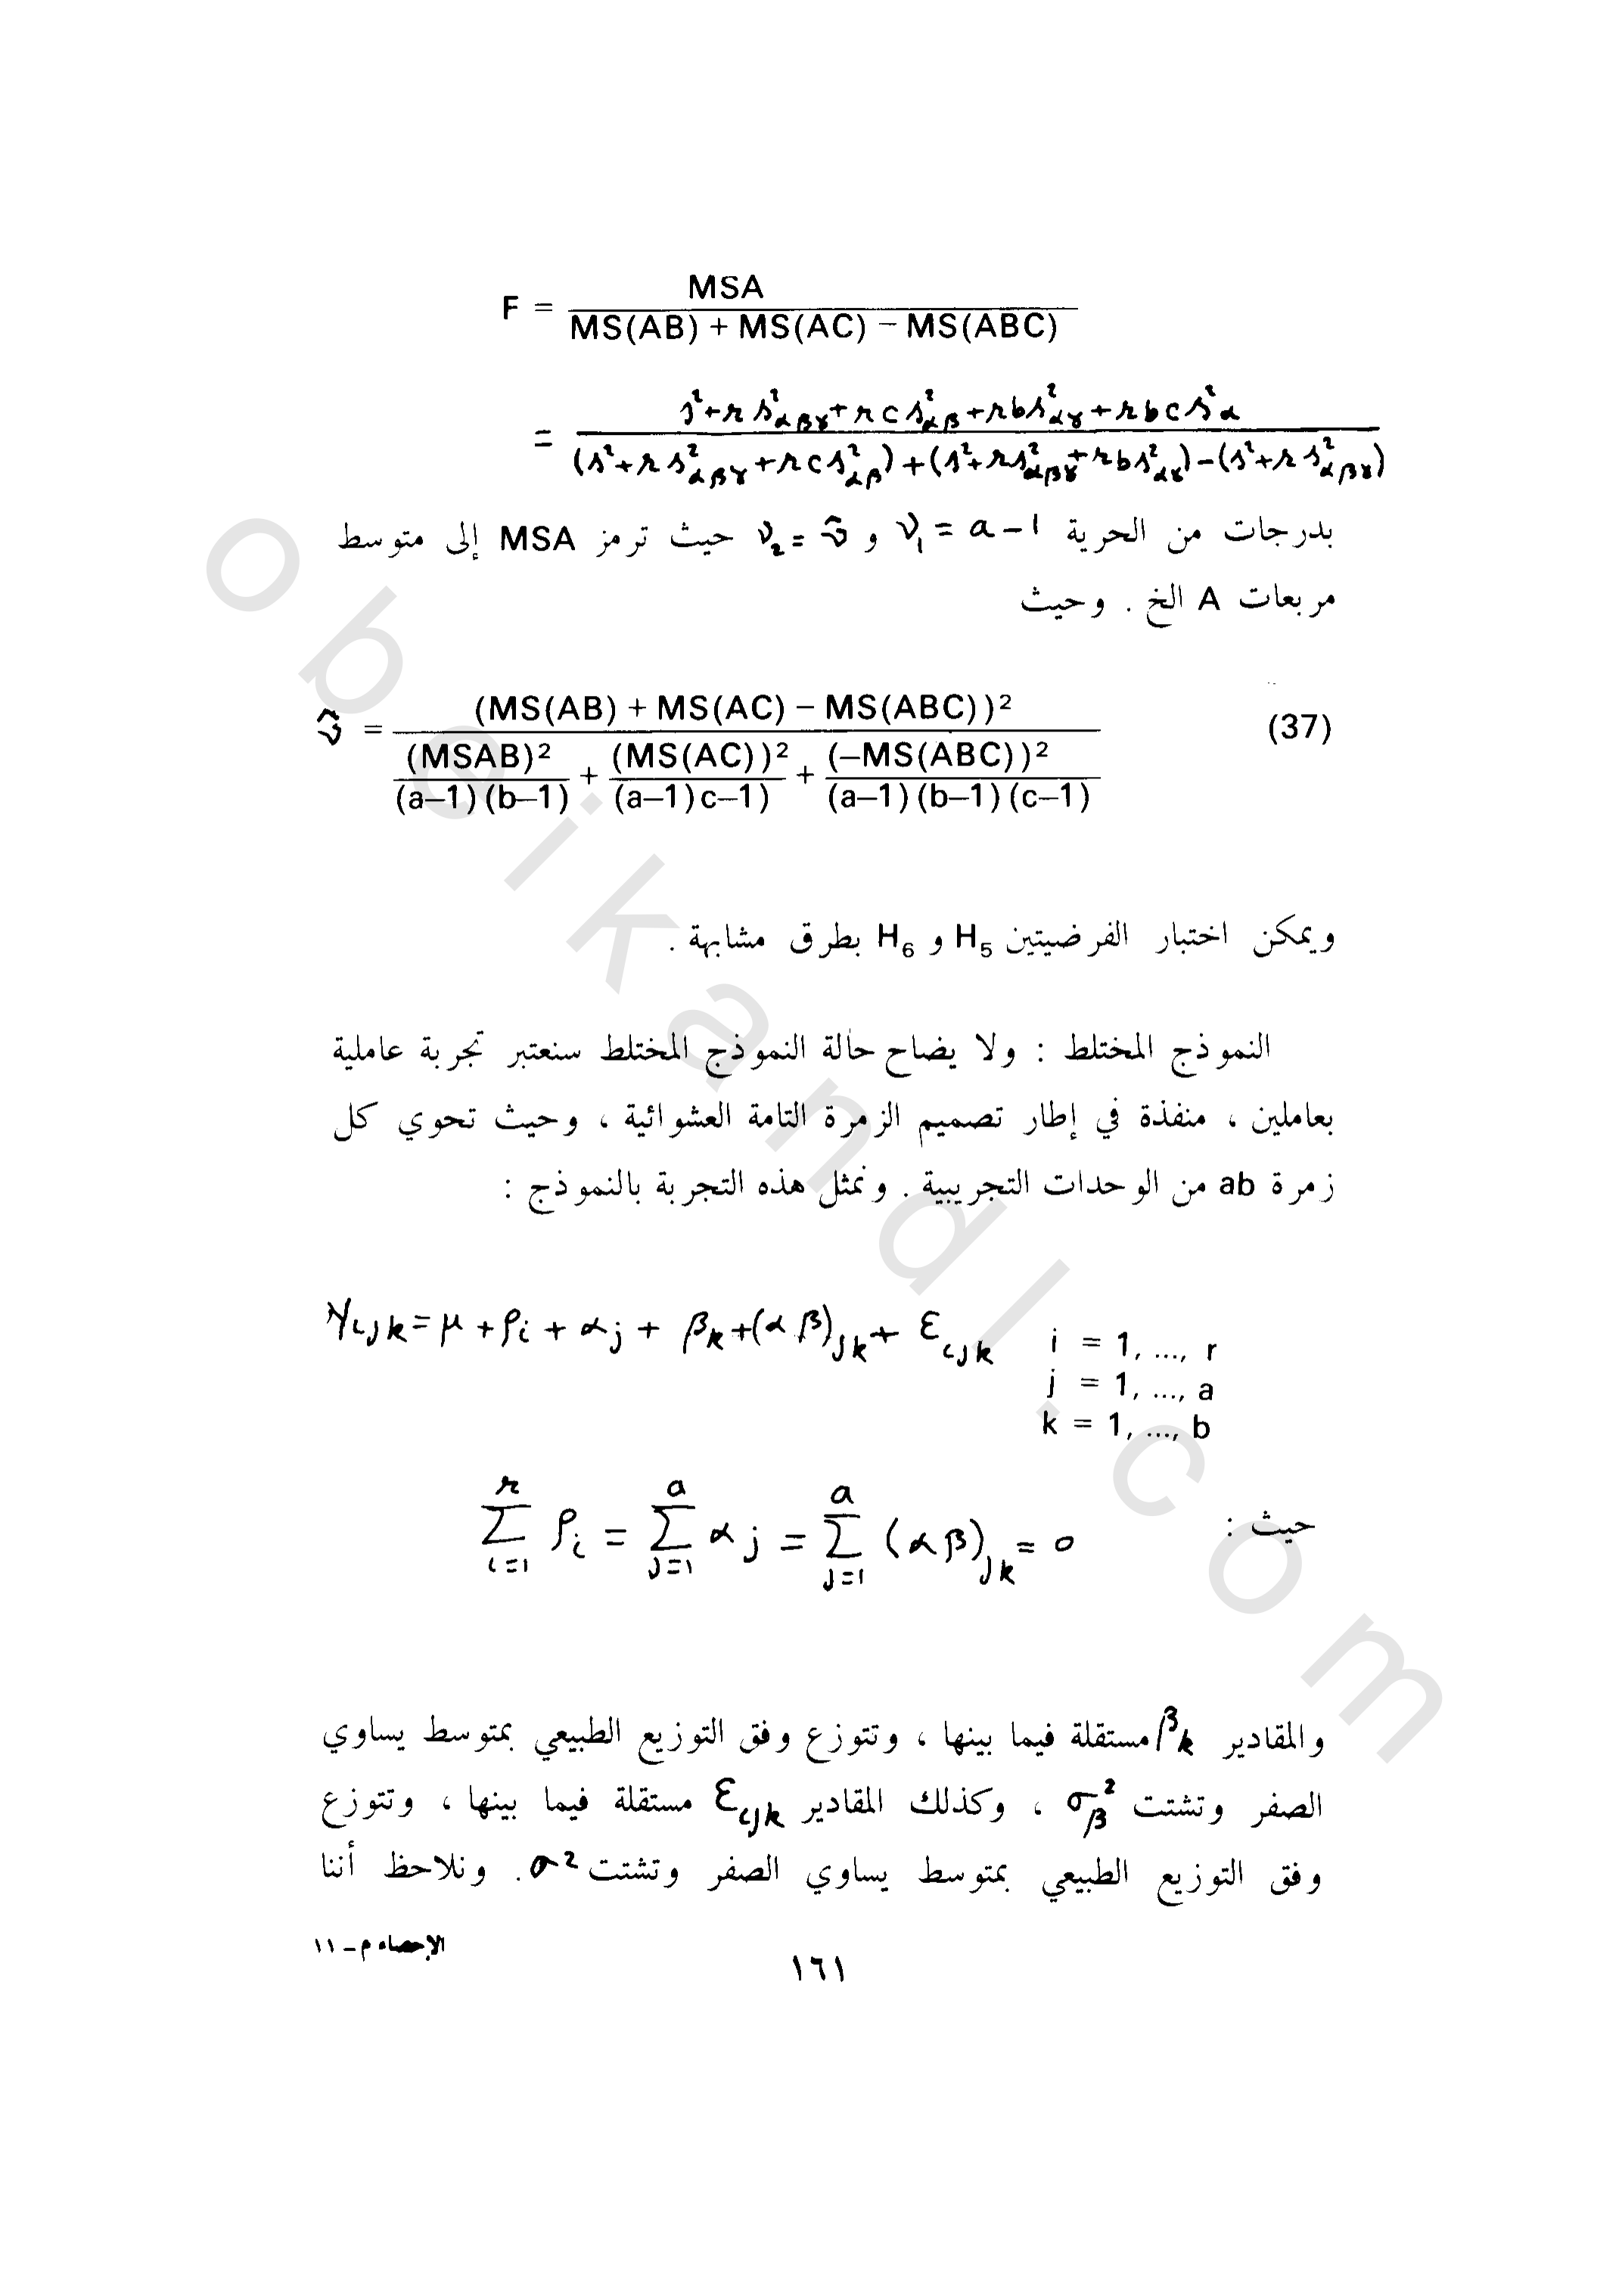 F = MSA / (MS(AB) + MS(AC) – MS(ABC))
= (s² + r s²αβγ + r c s²αβ + r b s²αγ + r b c s²α) / ((s² + r s²αβγ + r c s²αβ) + (s² + r s²αβγ + r b s²αγ) – (s² + r s²αβγ))
بدرجات من الحرية ν₁ = a – 1 و ν₂ = ν̂ حيث ترمز MSA إلى متوسط
مربعات A الخ . وحيث
ν̂ = (MS(AB) + MS(AC) – MS(ABC))² / ((MSAB)² / (a–1)(b–1) + (MS(AC))² / (a–1)c–1) + (–MS(ABC))² / (a–1)(b–1)(c–1)) (37)
ويمكن اختبار الفرضيتين H₅ و H₆ بطرق مشابهة .
النموذج المختلط : ولا يضاح حالة النموذج المختلط سنعتبر تجربة عاملية
بعاملين ، منفذة في إطار تصميم الزمرة التامة العشوائية ، وحيث تحوي كل
زمرة ab من الوحدات التجريبية . ونمثل هذه التجربة بالنموذج :
Yijk = μ + ρi + αj + βk + (αβ)jk + εijk i = 1, ..., r
j = 1, ..., a
k = 1, ..., b
حيث : Σ(i=1..r) ρi = Σ(j=1..a) αj = Σ(j=1..a) (αβ)jk = 0
والمقادير βk مستقلة فيما بينها ، وتتوزع وفق التوزيع الطبيعي بمتوسط يساوي
الصفر وتشتت σβ² ، وكذلك المقادير εijk مستقلة فيما بينها ، وتتوزع
وفق التوزيع الطبيعي بمتوسط يساوي الصفر وتشتت σ² . ونلاحظ أننا
الإحصاء م – ١١
١٦١
obeikandl.com